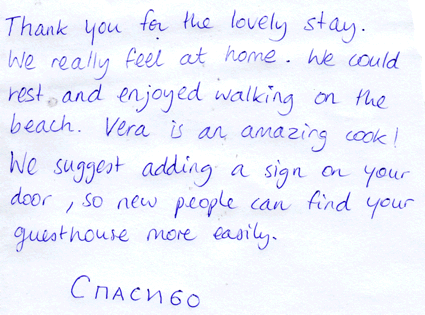 Thank you for the lovely stay.
We really feel at home. We could
rest and enjoyed walking on the
beach. Vera is an amazing cook!
We suggest adding a sign on your
door, so new people can find your
guesthouse more easily.
Спасибо